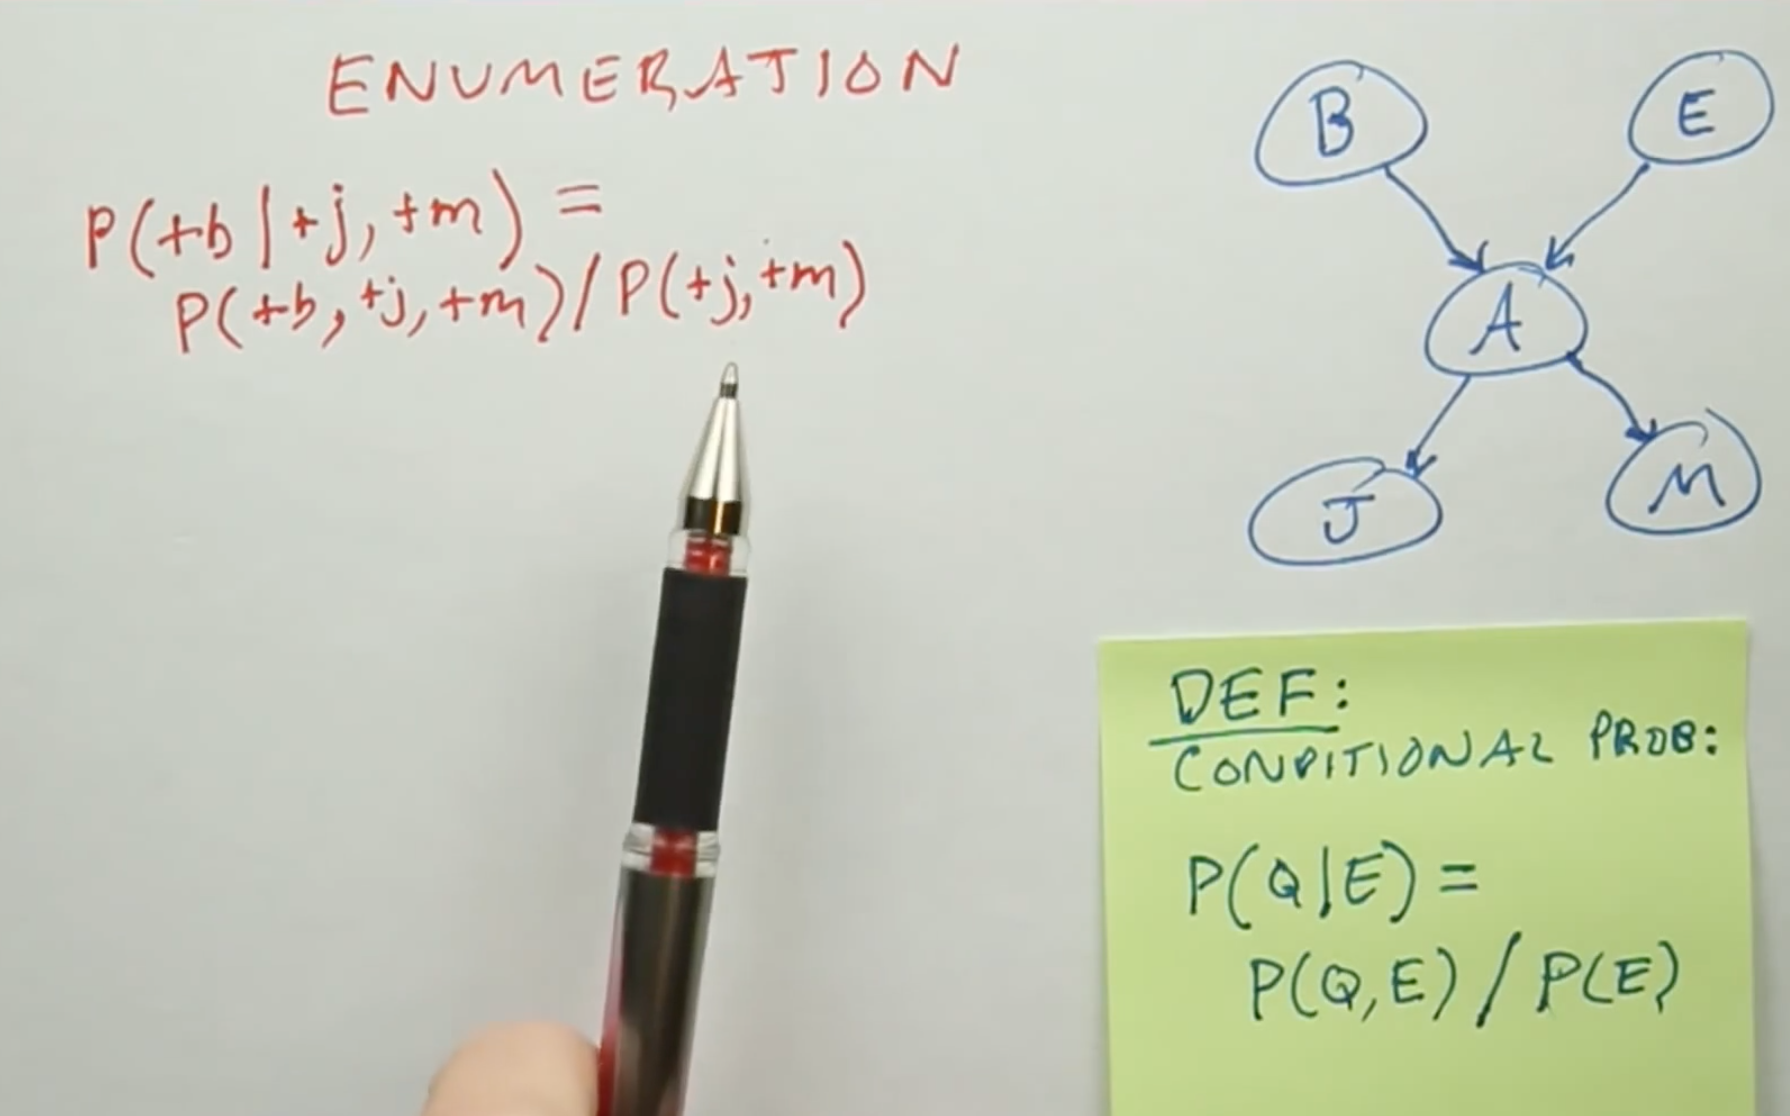 ENUMERATION
P(+b|+j,+m) =
P(+b,+j,+m)/P(+j,+m)
B
E
A
J
M
DEF:
CONDITIONAL PROB:
P(Q|E) =
P(Q,E)/P(E)